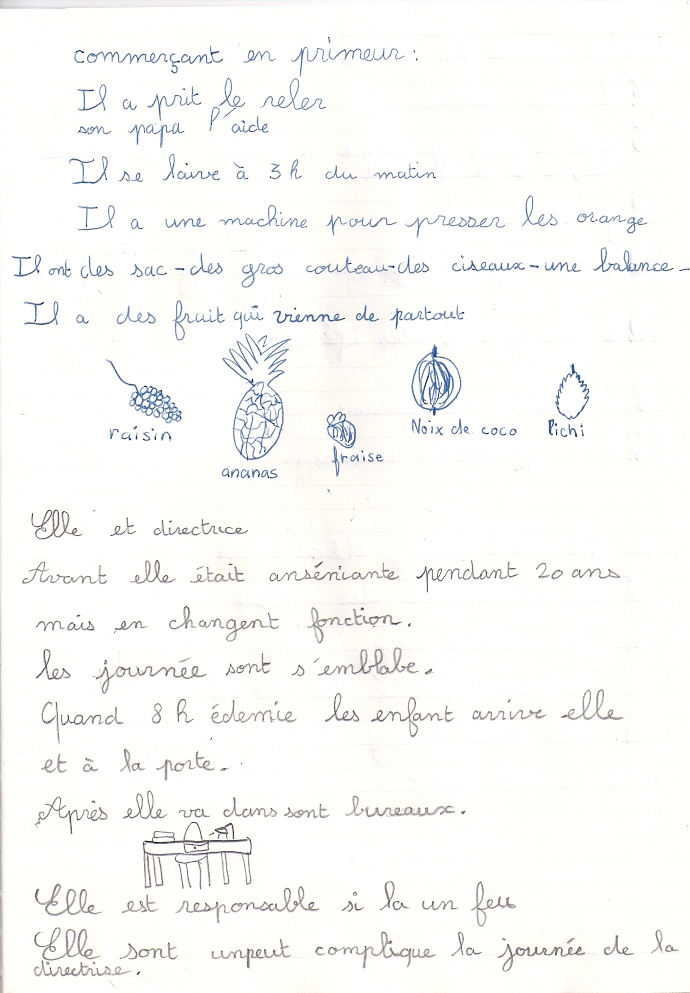 commerçant en primeur :
Il a prit le reler
son papa l'aide
Il se laive à 3 h du matin
Il a une machine pour presser les orange
Il ont des sac - des gros couteau - des ciseaux - une balance -
Il a des fruit qui vienne de partout
raisin
ananas
fraise
Noix de coco
lichi
Elle et directrice
Avant elle était anséniante pendant 20 ans
mais en changent fonction.
les journée sont s'emblabe.
Quand 8 h édemie les enfant arrive elle
et à la porte.
Après elle va dans sont bureaux.
Elle est responsable si la un feu
Elle sont unpeut complique la journée de la
directrise.